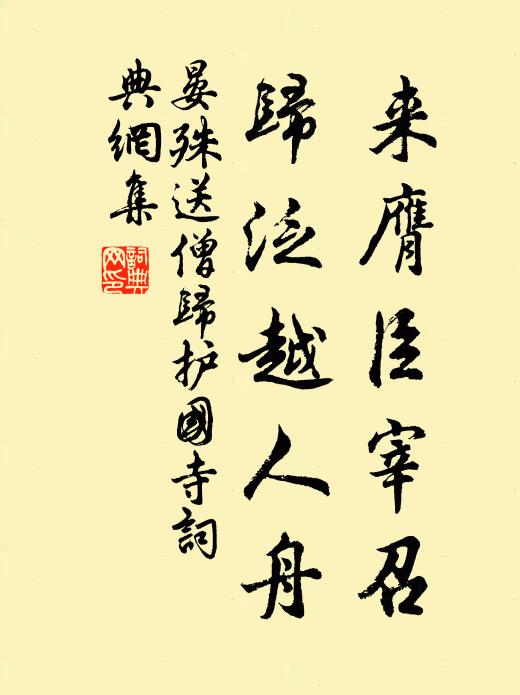 来膺臣宰召
歸泛越人舟
晏殊送僧歸护國寺詞
典網集
詞典
网印